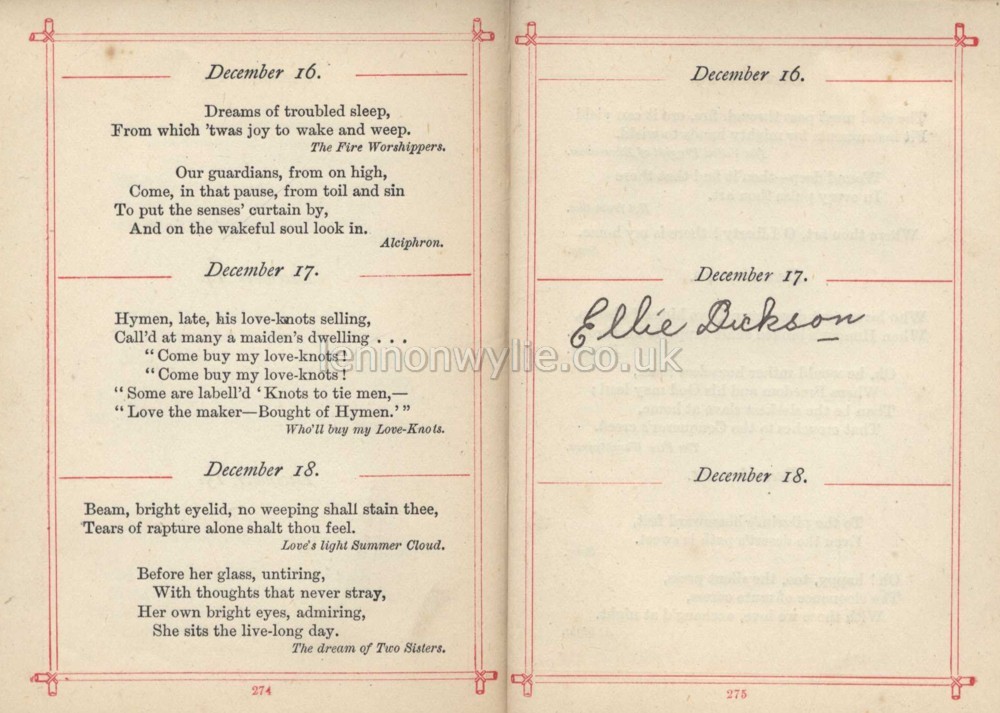 December 16.
Dreams of troubled sleep,
From which 'twas joy to wake and weep.
The Fire Worshippers.
Our guardians, from on high,
Come, in that pause, from toil and sin
To put the senses' curtain by,
And on the wakeful soul look in.
Alciphron.
December 17.
Hymen, late, his love-knots selling,
Call'd at many a maiden's dwelling . . .
“Come buy my love-knots!
“Come buy my love-knots!
“Some are labell'd ‘Knots to tie men,—
“Love the maker—Bought of Hymen.’”
Who'll buy my Love-Knots.
December 18.
Beam, bright eyelid, no weeping shall stain thee,
Tears of rapture alone shalt thou feel.
Love's light Summer Cloud.
Before her glass, untiring,
With thoughts that never stray,
Her own bright eyes, admiring,
She sits the live-long day.
The dream of Two Sisters.
274
December 16.
December 17.
Ellie Dickson
December 18.
275
lennonwylie.co.uk